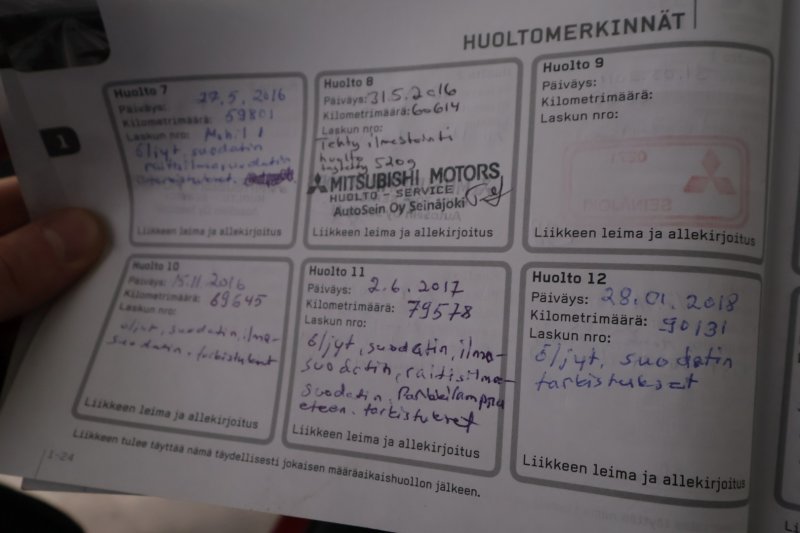 HUOLTOMERKINNÄT
1
Huolto 7
Päiväys: 27.5.2016
Kilometrimäärä: 59801
Laskun nro: Mobil 1
öljyt, suodatin
raitisilmasuodatin
Liikkeen leima ja allekirjoitus
Huolto 8
Päiväys: 31.5.2016
Kilometrimäärä: 60614
Laskun nro:
Tehty ilmastointi
huolto
520g
MITSUBISHI MOTORS
HUOLTO - SERVICE
AutoSein Oy Seinäjoki
Liikkeen leima ja allekirjoitus
Huolto 9
Päiväys:
Kilometrimäärä:
Laskun nro:
Liikkeen leima ja allekirjoitus
Huolto 10
Päiväys: 15.11.2016
Kilometrimäärä: 69645
Laskun nro:
öljyt, suodatin, ilma-
suodatin, tarkistukset
Liikkeen leima ja allekirjoitus
Huolto 11
Päiväys: 2.6.2017
Kilometrimäärä: 79578
Laskun nro:
öljyt, suodatin, ilma-
suodatin, raitisilma-
suodatin. Parkkilamppu
eteen. tarkistukset
Liikkeen leima ja allekirjoitus
Huolto 12
Päiväys: 28.01.2018
Kilometrimäärä: 90131
Laskun nro:
öljyt, suodatin
tarkistukset
Liikkeen leima ja allekirjoitus
Liikkeen tulee täyttää nämä täydellisesti jokaisen määräaikaishuollon jälkeen.
1-24